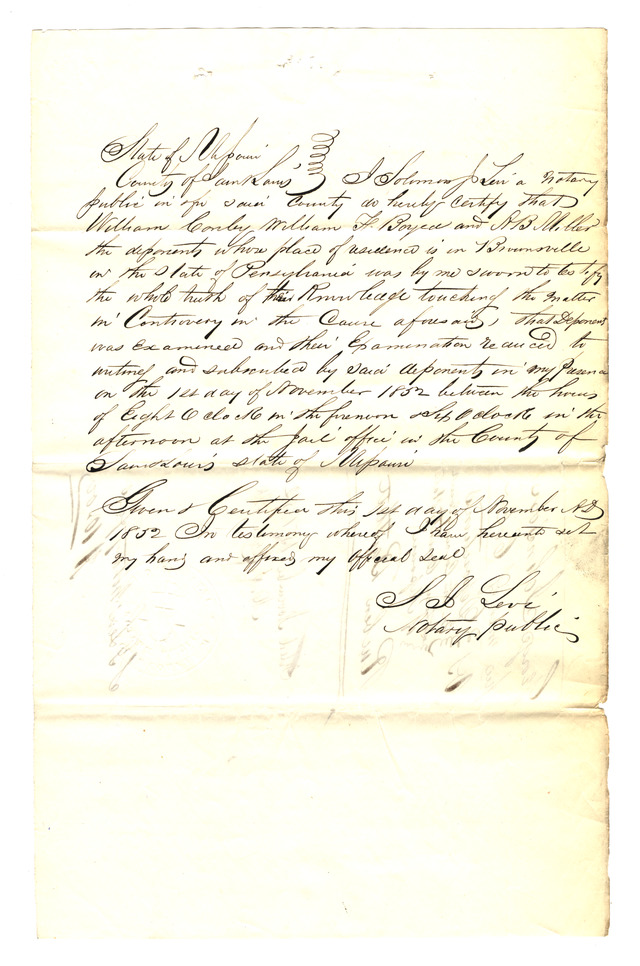 State of Missouri
County of Saint Louis I Solomon J Levi a Notary
public in & for said County do hereby certify that
William Conley William F. Boyed and A B Miller
the deponents whose place of residence is in Brownsville
in the State of Pensylvania was by me sworn to testify
the whole truth of their Knowledge touching the matter
in Controvery in the Cause aforesaid, that Deponent
was examined and their Examination reduced to
writing and subscribed by said deponents in my Presence
on the 1st day of November 1852 between the hours
of Eight O Clock in the forenoon & Six O Clock in the
afternoon at the Jail office in the County of
Saint Louis State of Missouri
Given & Certified this 1st day of November AD
1852 In testimony whereof I have hereunto set
my hand and affixed my official seal
S J Levi
Notary public